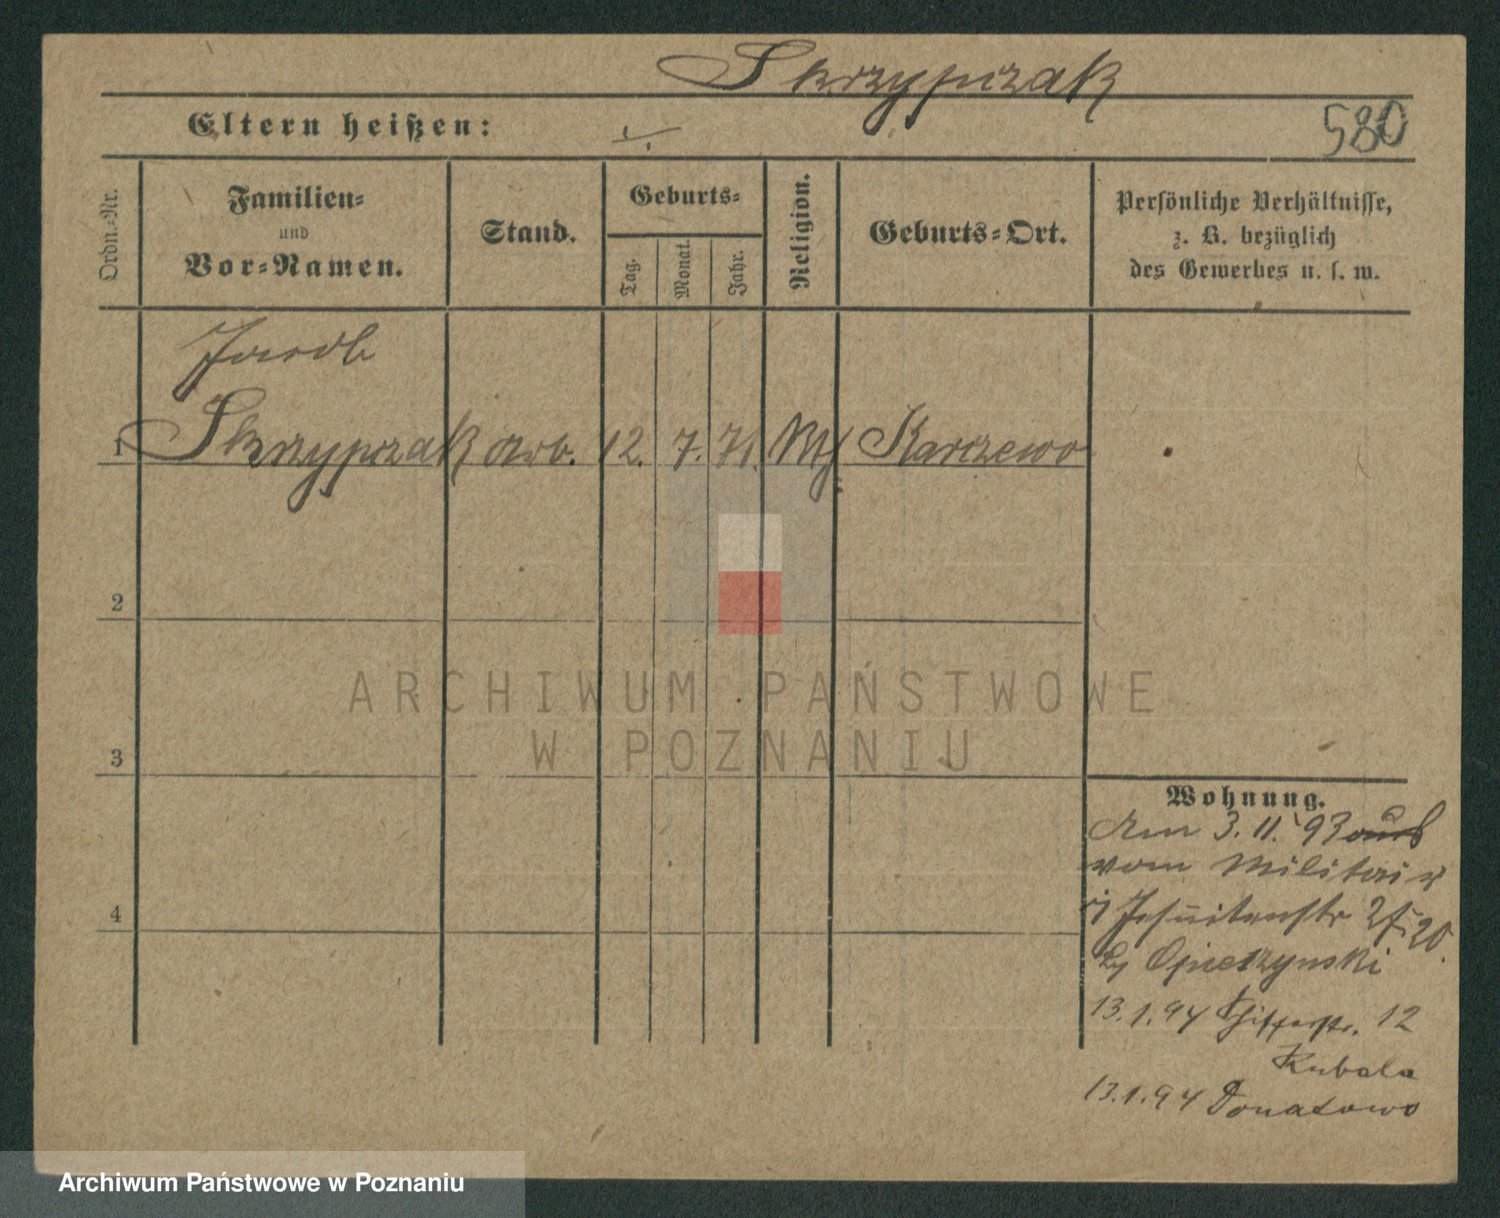 Skrzypczak
Eltern heißen:
580
Ordn.-Nr.
Familien-
und
Vor-Namen.
Stand.
Geburts-
Tag.
Monat.
Jahr.
Religion.
Geburts-Ort.
Persönliche Verhältnisse,
z. B. bezüglich
des Gewerbes u. s. w.
Jacob
1 Skrzypczak Arb. 12. 7. 71. Karczewo
2
3
4
ARCHIWUM PAŃSTWOWE
W POZNANIU
Wohnung.
Am 3. 11. 93
vom Militair
Jesuitenstr
Opieszynski
13.1.94 12
Kubala
13.1.94 Donatowo
Archiwum Państwowe w Poznaniu